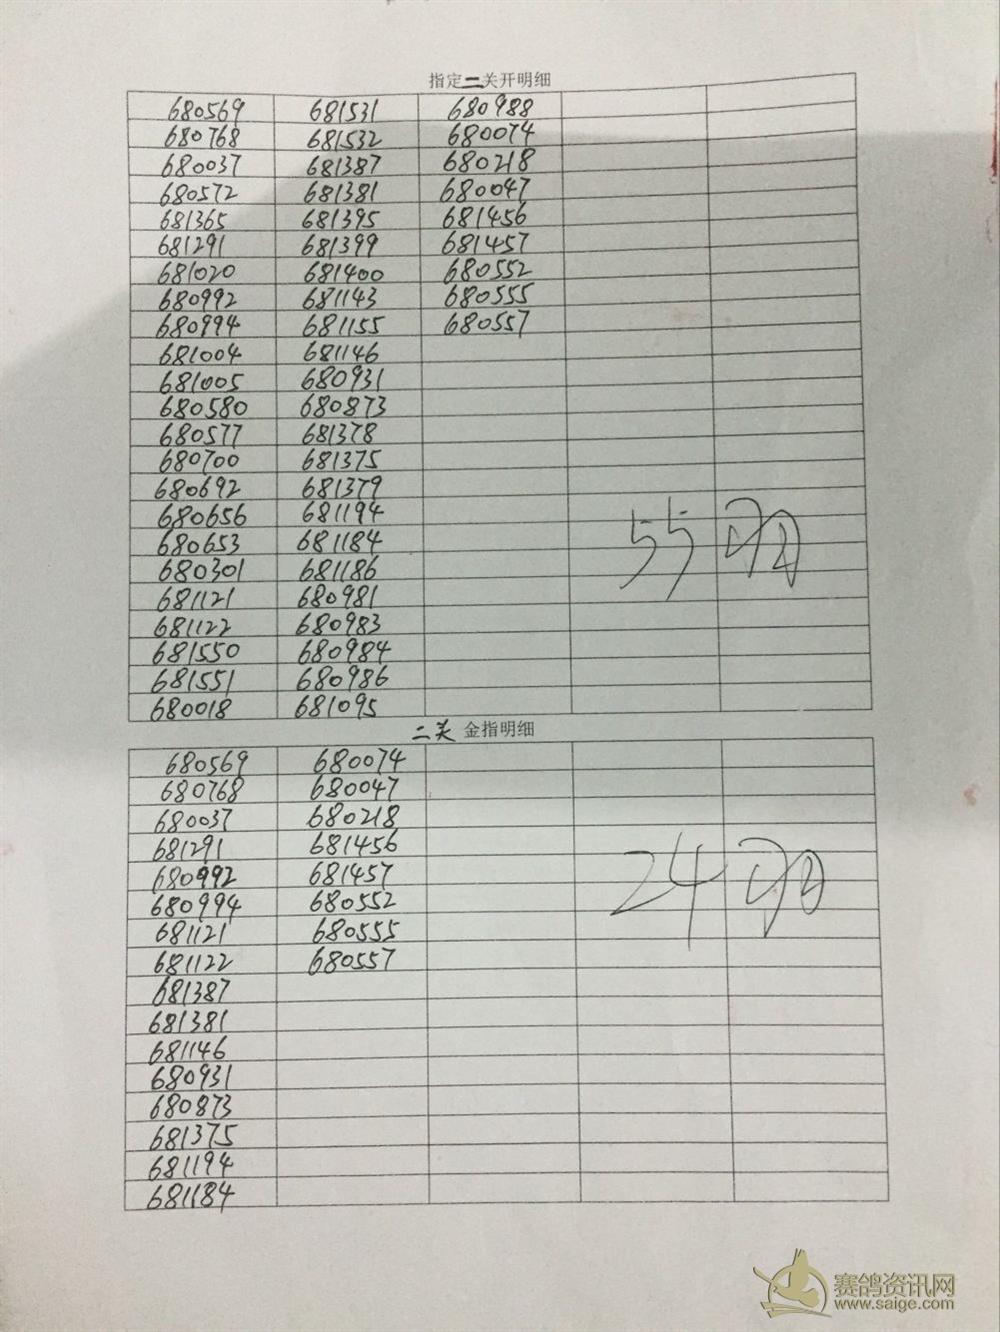 指定二关开明细
680569 681531 680988
680768 681532 680074
680037 681387 680218
680572 681381 680047
681365 681395 681456
681291 681399 681457
681020 681400 680552
680992 681143 680555
680994 681155 680557
681004 681146
681005 680931
680580 680873
680577 681378
680700 681375
680692 681379
680656 681194
680653 681184 55羽
680301 681186
681121 680981
681122 680983
681550 680984
681551 680986
680018 681095
二关 金指明细
680569 680074
680768 680047
680037 680218
681291 681456
680992 681457 24羽
680994 680552
681121 680555
681122 680557
681387
681381
681146
680931
680873
681375
681194
681184
赛鸽资讯网
www.saige.com